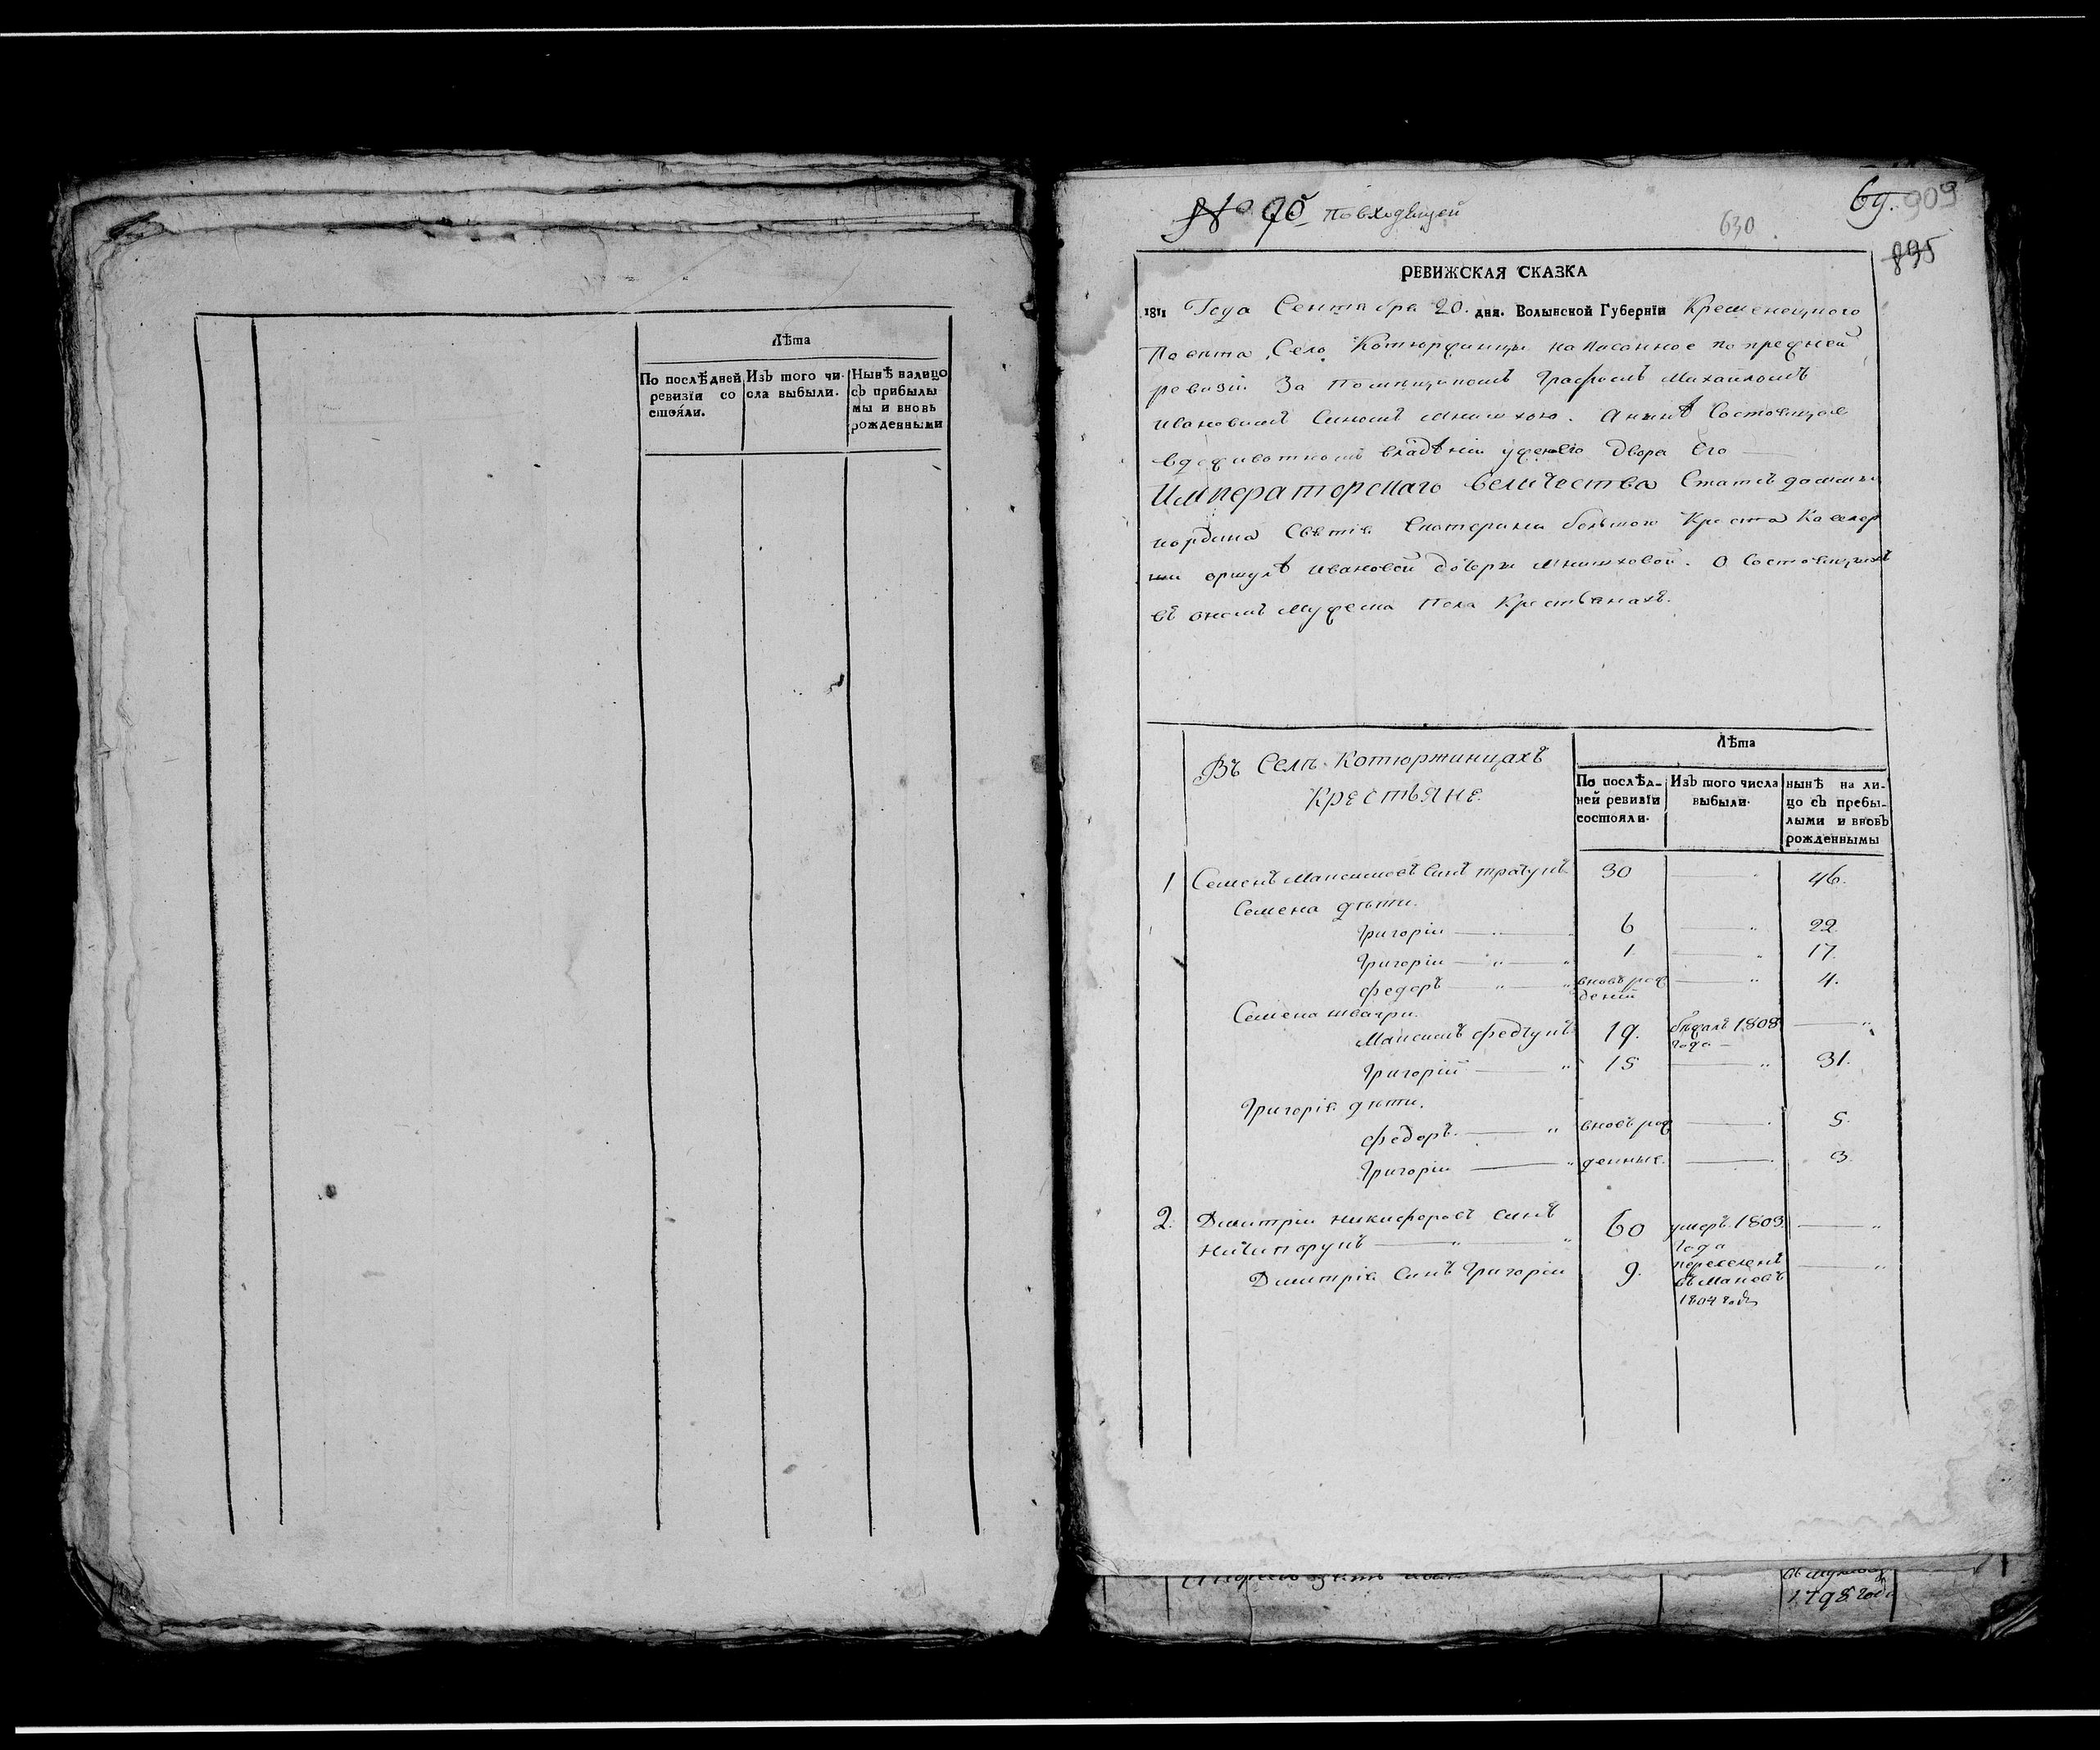 Лѣта
По послѣдней ревизїи со стояли.
Изъ того чи- сла выбыли.
Нынѣ налицо съ прибылы мы и вновь рожденными
№ 70 повходящей
69. 909
630
895
РЕВИЖСКАЯ СКАЗКА
1811 Года Сентября 20. дня. Волынской Губернїи Кременецкого
Повѣта Село Котюржинцы написанное по прежней
ревизіи За Помещикомъ Графомъ Михайломъ
Ивановымъ Синомъ Мнишкою. А нынѣ Состоящое
владѣніи Двора Его
Императорскаго величества Статсъ дамы
ордина Святія Екатерины большого Креста Кавалер
Оршулѣ Ивановой дочери Мнишховой. О Состоящихъ
въ ономъ Мужеска Пола Крестьянахъ.
Въ Селѣ Котюржинцахъ
Крестьяне.
Лѣта
По послѣд- ней ревизїи состояли.
Изъ того числа выбыли.
нынѣ на ли- цо съ пребы- лыми и вновь рожденнымы
1 Семенъ Максимовъ Синъ 30 46.
Семена дѣти.
Григоріи 6 22.
Григоріи 1 17.
Федоръ вновърож деній 4.
Семена швагри.
Максимъ Федчунъ 19. бѣжалъ 1808 года
Григорій 15 31.
Григорія дѣти.
Федоръ. вновърож 5.
Григоріи денные. 3.
2. Дмитріи Никифоровъ Синъ 60 умеръ. 1803 года
Ничипорунъ
Дмитрія Синъ Григоріи 9. переселенъ въ Мановъ 1804 года
1798 года